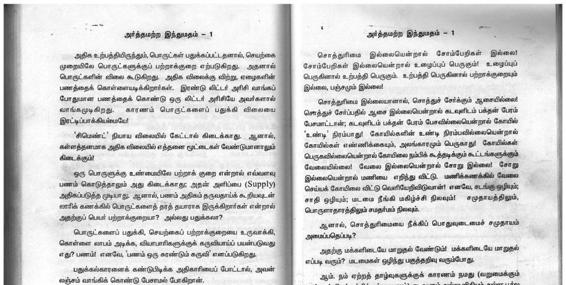 அர்த்தமற்ற இந்துமதம் – 1
அதிக உற்பத்தியிருந்தும், பொருட்கள் பதுக்கப்பட்டதனால், செயற்கை
முறையிலே பொருட்களுக்குப் பற்றாக்குறை ஏற்படுகிறது. அதனால்
பொருள்களின் விலை கூடுகிறது. அதிக விலைக்கு விற்று, ஏழைகளின்
பணத்தைக் கொள்ளையடிக்கிறார்கள். இரண்டு லிட்டர் அரிசி வாங்கப்
போதுமான பணத்தைக் கொண்டு ஒரு லிட்டர் அரிசியே அவர்களால்
வாங்கமுடிகிறது. காரணம் பொருட்களைப் பதுக்கி விலையை
இரட்டிப்பாக்கியமையே!
'சிமெண்ட்' நியாய விலையில் கேட்டால் கிடைக்காது. ஆனால்,
கள்ளத்தனமாக அதிக விலையில் எத்தனை மூட்டைகள் வேண்டுமானாலும்
கிடைக்கும்!
ஒரு பொருளுக்கு உண்மையிலே பற்றாக் குறை என்றால் எவ்வளவு
பணம் கொடுத்தாலும் அது கிடைக்காது; அதன் அளிப்பை (Supply)
அதிகப்படுத்த முடியாது. ஆனால், பணம் அதிகம் தருவதாய்க் கூறியவுடன்
லாரிக் கணக்கில் பொருட்களைத் தரத் தயாராக இருக்கிறார்கள் என்றால்
அதற்குப் பெயர் பற்றாக்குறையா? அல்லது பதுக்கலா?
பொருட்களைப் பதுக்கி, செயற்கைப் பற்றாக்குறையை உருவாக்கி,
கொள்ளை லாபம் அடிக்க, வியாபாரிகளுக்குக் கருவியாய் பயன்படுவது
எது? பணம்! எனவே, பணம் ஒரு சுரண்டும் கருவி எனப்படுகிறது.
பதுக்கல்காரனைக் கண்டுபிடிக்க அதிகாரியைப் போட்டால், அவன்
லஞ்சம் வாங்கிக் கொண்டு பேசாமல் போகிறான்.
அர்த்தமற்ற இந்துமதம் – 1
சொத்துரிமை இல்லையென்றால் சோம்பேறிகள் இல்லை!
சோம்பேறிகள் இல்லையென்றால் உழைப்புப் பெருகும்! உழைப்புப்
பெருகினால் உற்பத்தி பெருகும். உற்பத்தி பெருகினால் பற்றாக்குறையும்
இல்லை, பஞ்சமும் இல்லை!
சொத்துரிமை இல்லையானால், சொத்துச் சேர்க்கும் ஆசையில்லை!
சொத்துச் சேர்ப்பதில் ஆசை இல்லையென்றால் கடவுளிடம் பக்தன் பேரம்
பேசமாட்டான்; கடவுளிடம் பக்தன் பேரம் பேசவில்லையென்றால் கோயில்
'உண்டி' நிரம்பாது! கோயில்களின் உண்டி நிரம்பவில்லையென்றால்
கோயில்கள் எண்ணிக்கையும், அலங்காரமும் பெருகாது! கோயில்கள்
பெருகவில்லையென்றால் கோயிலை நம்பிக் கூத்தடிக்கும் கூட்டங்களுக்கு
வேலையில்லை! வேலை இல்லையென்றால் சோறு இல்லை! சோறு
இல்லையென்றால் மணியை எறிந்து விட்டு, மணிக்கணக்கில் வேலை
செய்யக் கோயிலை விட்டு வெளியேறிவிடுவான்! எனவே, மடங்கு ஒழியும்;
சாதி ஒழியும்; மடமை நீங்கி மகிழ்ச்சி நிலவும்! சமுதாயத்திலும்,
பொருளாதாரத்திலும் சமதர்மம் நிலவும்.
ஆனால், சொத்துரிமையை நீக்கிப் பொதுவுடைமைச் சமுதாயம்
அமைப்பதெப்படி?
அதற்கு மக்களிடையே மாறுதல் வேண்டும்! மக்களிடையே மாறுதல்
எப்படி வரும்? மடமைகள் ஒழிந்து பகுத்தறிவு வரும்போது.
ஆம். நம் ஏற்றத் தாழ்வுகளுக்குக் காரணம் நமது (வறுமைக்கும்